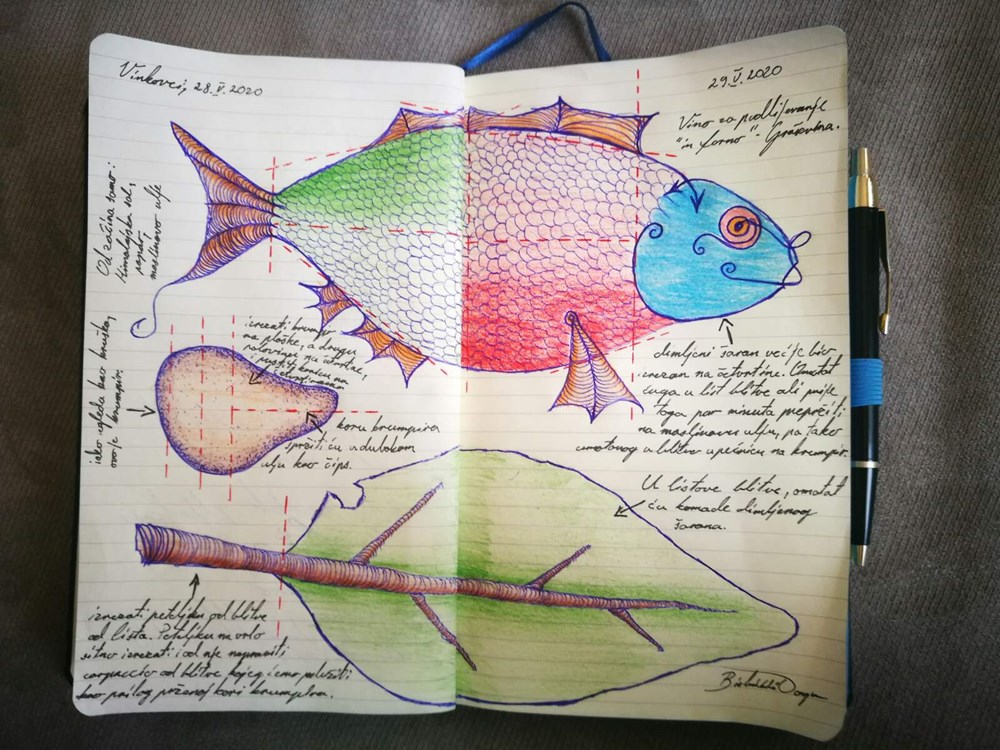 Vinkovci, 28.V.2020
29.V.2020
Vino za podlijevanje
"in forno" - Graševina.
Od začina samo:
Himalajska sol,
papar i
maslinovo ulje
izrezati krumpir
na ploške, a drugu
polovinu na četvrtine,
iako izgleda kao kruška,
ovo je krumpir.
koru krumpira
spržiti ću u dubokom
ulju kao čips.
dimljeni šaran već je bio
rezan na četvrtine. Omotat
ću ga u list blitve ali prije
toga par minuta prepržiti
na maslinovu ulju, pa tako
umotanog u blitvu u pećnicu na krumpir.
U listove blitve, omotat
ću komade dimljenog
šarana.
izrezati peteljku od blitve
od lista. Peteljku na vrlo
sitno izrezati i od nje napraviti
carpaccio od blitve kojeg ćemo poslužiti
kao prilog prženoj kori krumpira.